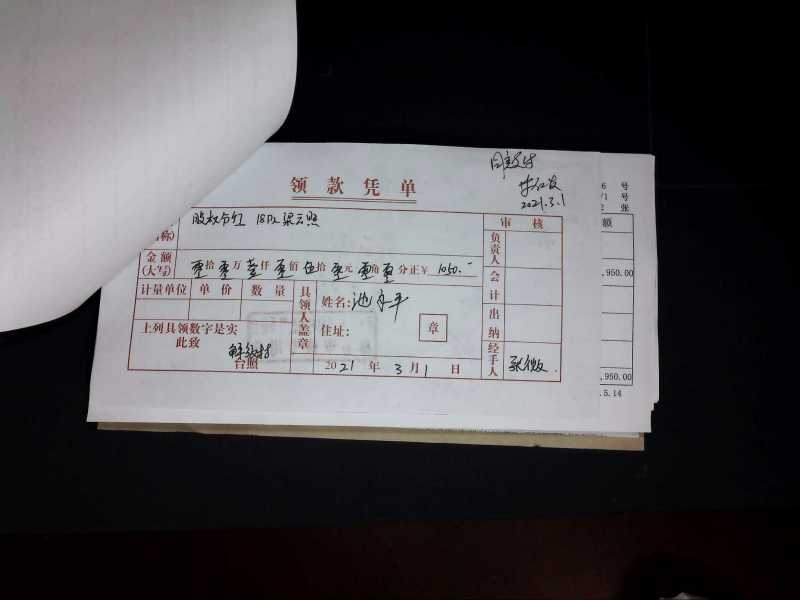 领款凭单
2021.3.1
6 号
/1 号
2 张
额
称)
股权分红 18队 梁云照
审核
负责人
金额
(大写)
零拾零万壹仟零佰伍拾零元零角零分正¥ 1050.-
,950.00
会计
计量单位 单价 数量
具领人盖章
姓名:池永平
出纳
住址:
章
上列具领数字是实
此致
台照
2021年3月1日
经手人
,950.00
.5.14